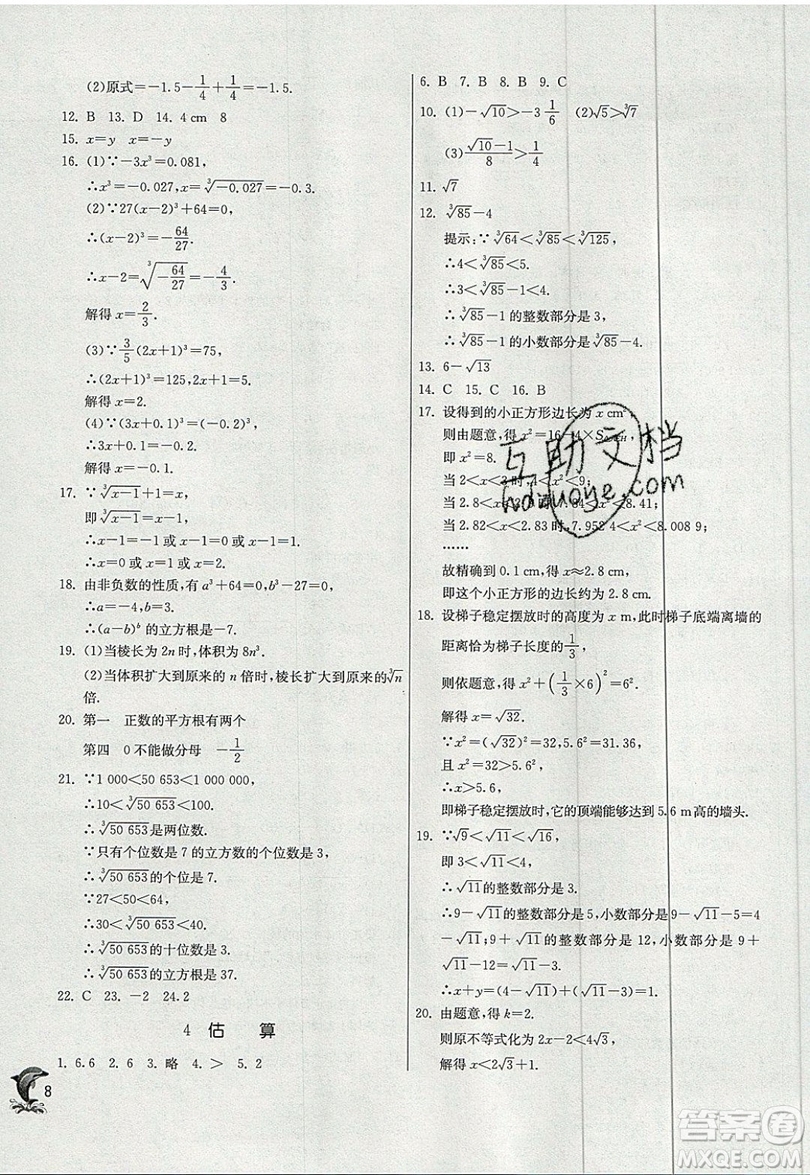 (2)原式=-1.5-1/4+1/4=-1.5.
12. B 13. D 14. 4 cm 8
15. x=y x=-y
16. (1)∵-3x³=0.081,
∴x³=-0.027,x=∛-0.027=-0.3.
(2)∵27(x-2)³+64=0,
∴(x-2)³=-64/27.
∴x-2=∛(-64/27)=-4/3.
解得 x=2/3.
(3)∵3/5(2x+1)³=75,
∴(2x+1)³=125,∴2x+1=5.
解得 x=2.
(4)∵(3x+0.1)³=-0.008,
∴3x+0.1=-0.2.
解得 x=-0.1.
17. ∵∛(x-1)+1=x,
即∛(x-1)=x-1.
∴x-1=-1 或 x-1=0 或 x-1=1.
∴x=0 或 x=1 或 x=2.
18. 由非负数的性质,有 a³+64=0,b³-27=0.
∴a=-4,b=3.
∴(a-b)ᵇ 的立方根是-7.
19. (1)当棱长为 2n 时,体积为 8n³.
(2)当体积扩大到原来的 n 倍时,棱长扩大到原来的∛n
倍.
20. 第一 正数的平方根有两个
第四 0不能做分母 -1/2
21. ∵1 000<50 653<1 000 000,
∴10<∛50 653<100.
∴∛50 653是两位数.
∵只有个位数是 7 的立方数的个位数是 3,
∴∛50 653的个位数是 7.
∵27<50<64,
∴30<∛50 653<40.
∴∛50 653的十位数是 3.
∴50 653的立方根是 37.
22. C 23. -2 24.2
4 估 算
1. 6.6 2. 6 3. 略 4. > 5. 2
8
6. B 7. B 8. B 9. C
10. (1)-√10>-3 1/6 (2)√5>∛7
(3)(√10-1)/8>1/4
11. √7
12. ∛85-4
提示:∵∛64<∛85<∛125,
∴4<∛85<5.
∴3<∛85-1<4.
∴∛85-1 的整数部分是 3,
∴∛85-1 的小数部分是∛85-4.
13. 6-√13
14. C 15. C 16. B
17. 设得到的小正方形边长为 x cm
则由题意,得 x²=16-4×S
即 x²=8.
当 2<x<3时,4<x²<9;
当 2.8<x<2.9时,7.84<x²<8.41;
当 2.82<x<2.83 时,7.952 4<x²<8.008 9;
……
故精确到 0.1 cm,得 x≈2.8 cm,
即这个小正方形的边长约为 2.8 cm.
18. 设梯子稳定摆放时的高度为 x m,此时梯子底端离墙的
距离恰为梯子长度的1/3,
则依题意,得 x²+(1/3×6)²=6².
解得 x=√32.
∵x²=(√32)²=32,5.6²=31.36,
∴32>31.36.
∴x>5.6,
即梯子稳定摆放时,它的顶端能够达到 5.6 m 高的墙头.
19. ∵√9<√11<√16,
即 3<√11<4.
∴√11的整数部分是 3.
∴9-√11的整数部分是 5,小数部分是 9-√11-5=4
-√11;9+√11的整数部分是 12,小数部分是 9+
√11-12=√11-3.
∴x+y=4-√11+√11-3=1.
20. 由题意,得 k=2.
则原不等式化为 2x-2<4√3.
解得 x<2√3+1.
互助文档
hdzuoye.com
答案卷
MXQE.COM